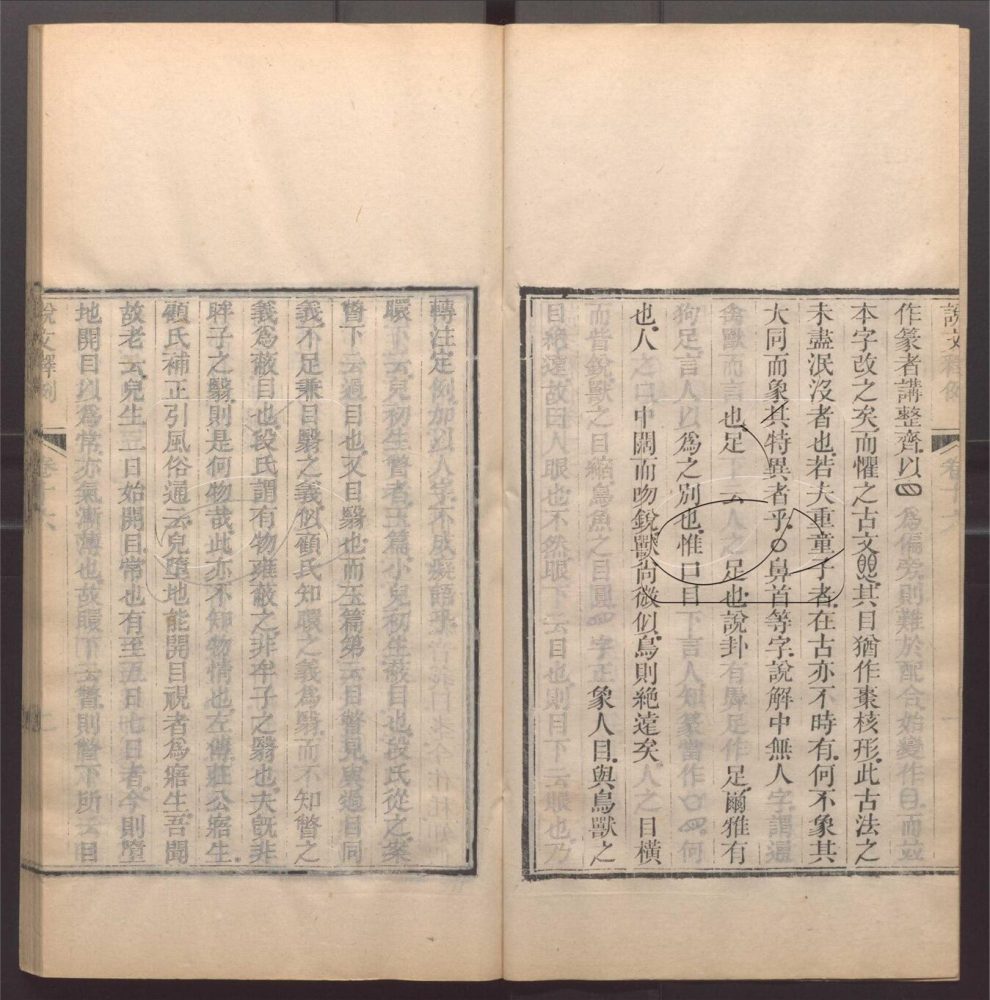 說文釋例
作篆者講整齊以𦉰為偏旁則難於配合始變作目而並
本字改之矣而懼之古文𢥠其目猶作棗核形此古法之
未盡泯沒者也若夫重童子者在古亦不時有何不象其
大同而象其特異者乎○鼻首等字說解中無人字謂通
禽獸而言也足下云人之足也說卦有馵足作足爾雅有
狗足言人以為之別也惟口目下言人知篆當作何
也人之口中闊而吻銳獸尚微似鳥則絕遠矣人之目橫
而眥銳獸之目縮鳥魚之目圓字正象人目與鳥獸之
目絕遠故曰人眼也不然眼下云目也則目下云眼也乃
轉注定例加以人字不成癡語乎
下云兒初生瞥者玉篇小兒初生蔽目也段氏從之案
瞥下云過目也又目翳也而玉篇第云目瞥見與過目同
義不足兼目翳之義似顧氏知䁔之義為翳而不知瞥之
義為蔽目也段氏謂有物雍蔽之非牟子之翳也夫旣非
眸子之翳則是何物哉此亦不知物情也左傳莊公寤生
顧氏補正引風俗通云兒墮地能開目視者為寤生吾聞
故老云兒生三日始開目常也有至五日七日者今則墮
地開目以為常亦氣漸薄也故䁔下云瞥則瞥下所云目
說文釋例
卷十六
二